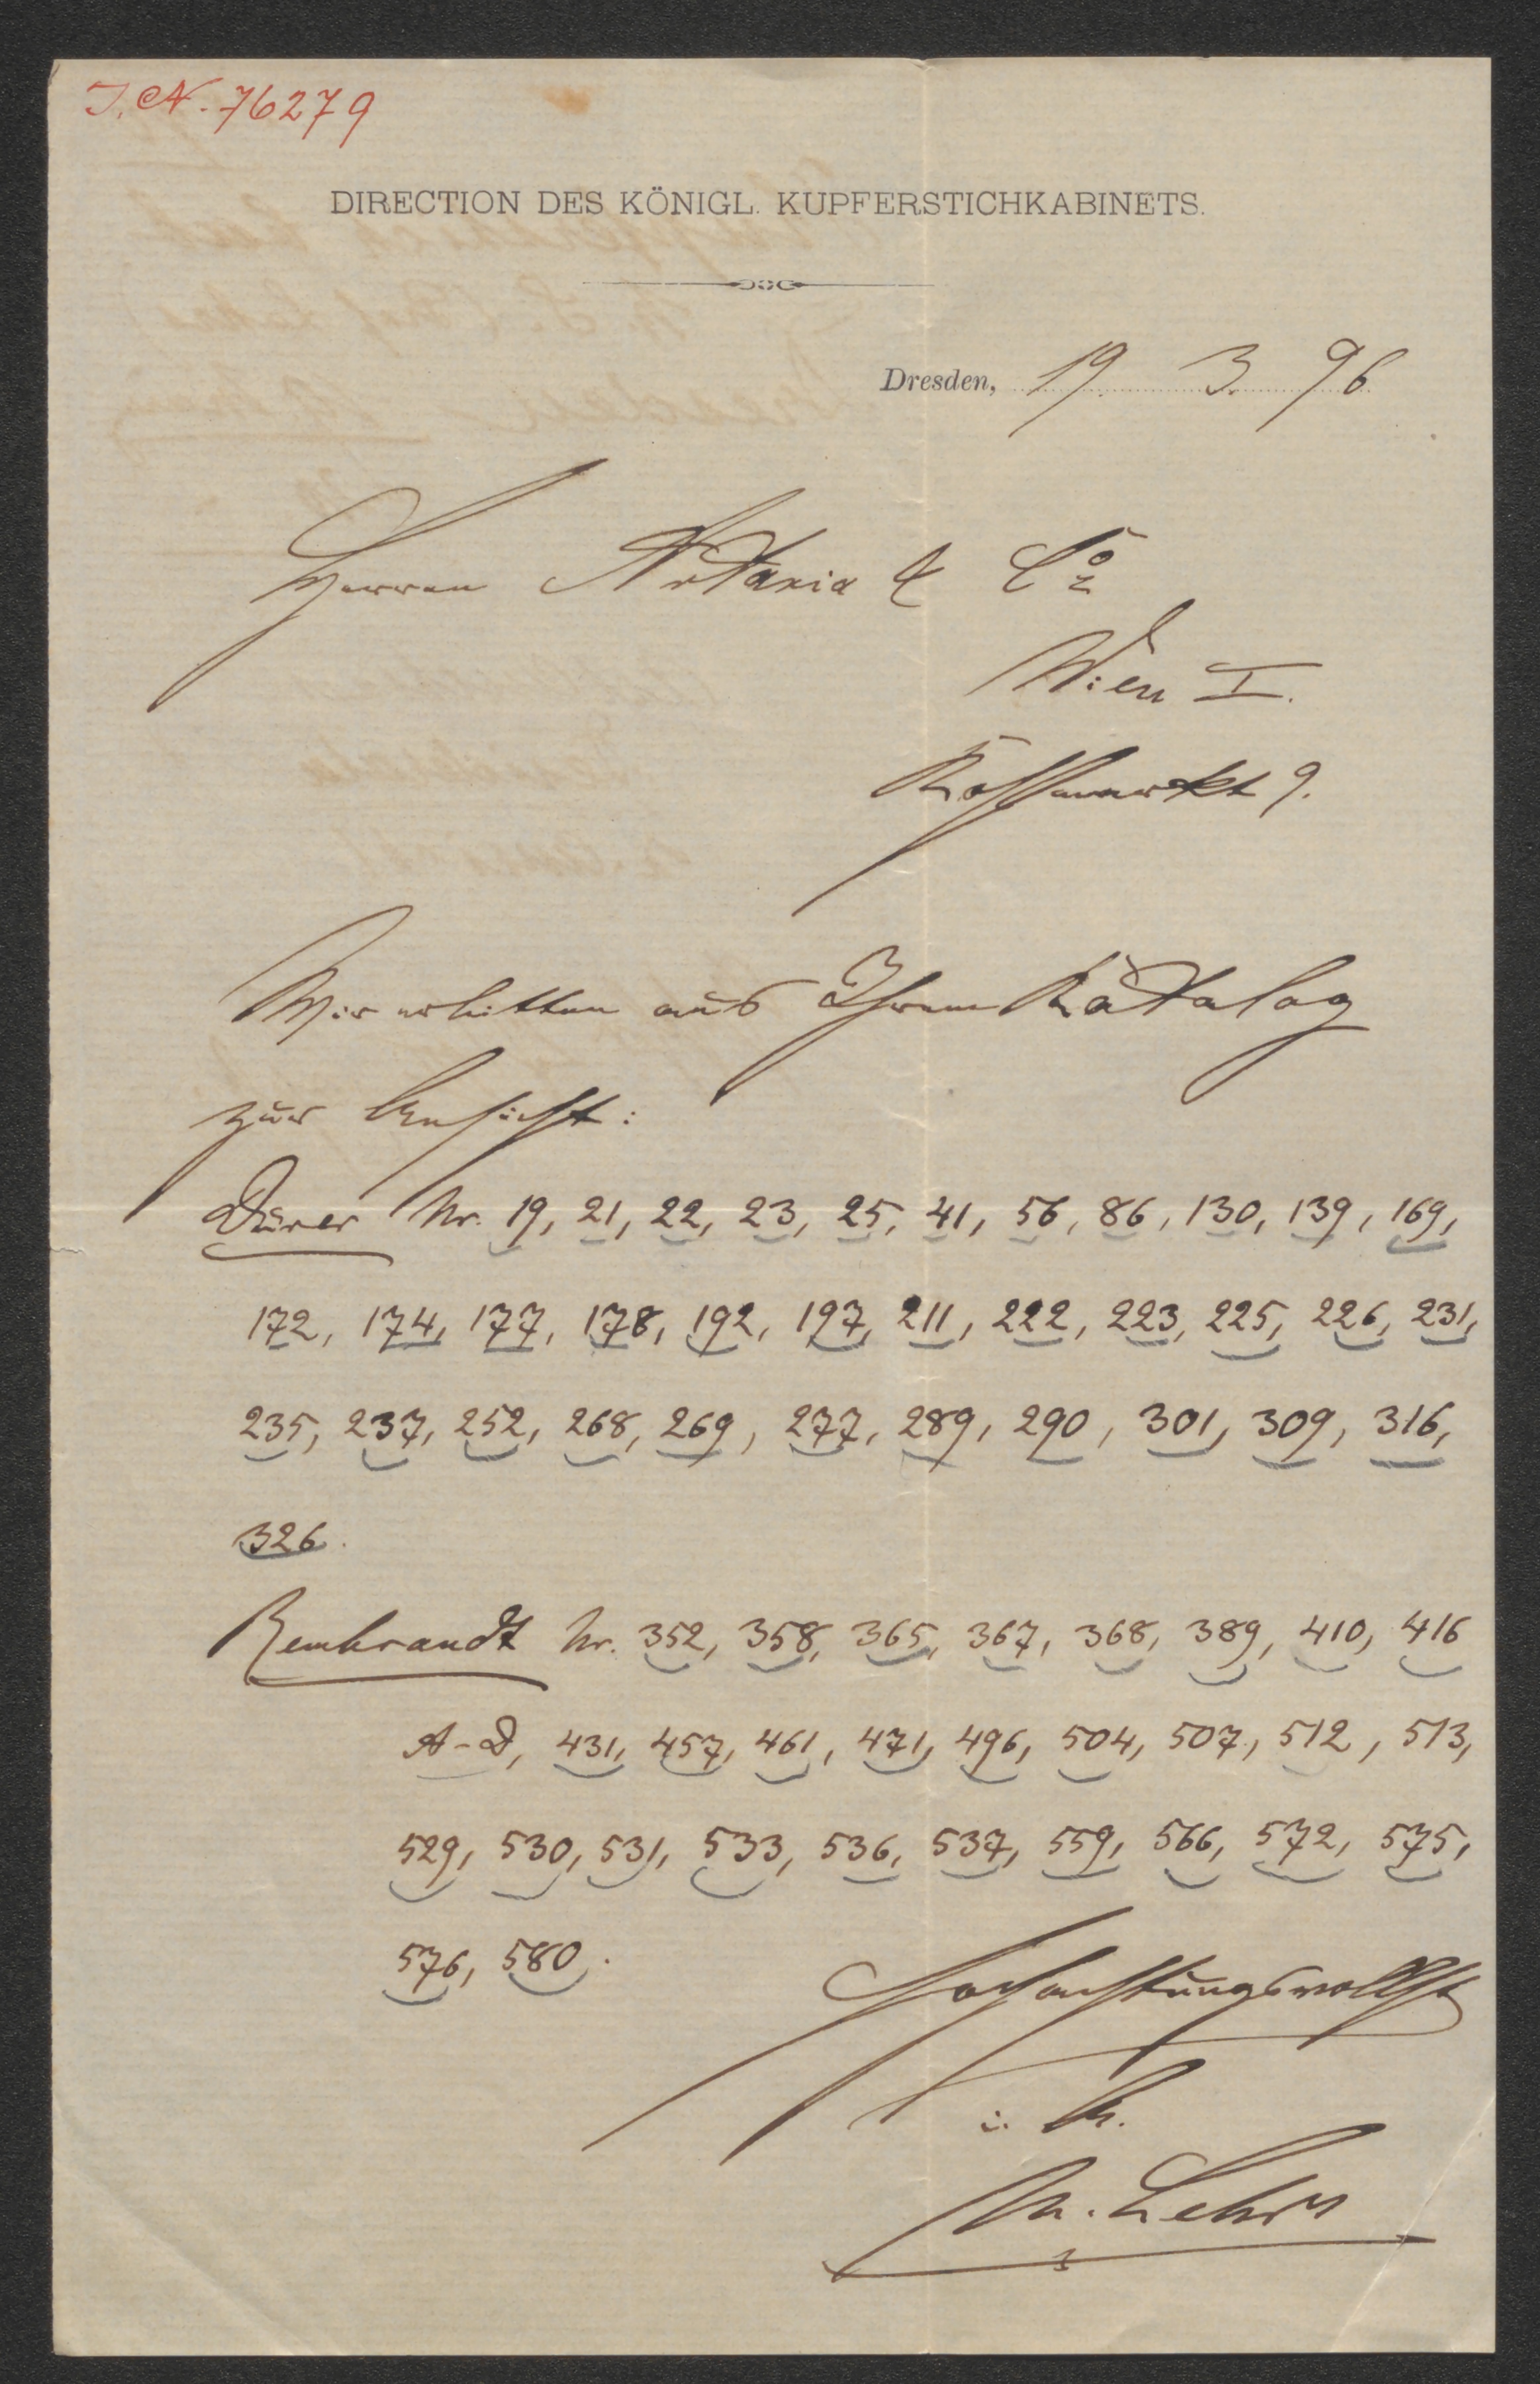 I. N. 76279
DIRECTION DES KÖNIGL. KUPFERSTICHKABINETS.
Dresden, 19. 3. 96
Herren Artaria & Co
Wien I.
Kohlmarkt 9.
Wir erbitten aus Ihrem Katalog
zur Ansicht:
Dürer Nr. 19, 21, 22, 23, 25, 41, 56, 86, 130, 139, 169,
172, 174, 177, 178, 192, 197, 211, 222, 223, 225, 226, 231,
235, 237, 252, 268, 269, 277, 289, 290, 301, 309, 316,
326.
Rembrandt Nr. 352, 358, 365, 367, 368, 389, 410, 416
A-D, 431, 457, 461, 471, 496, 504, 507, 512, 513,
529, 530, 531, 533, 536, 537, 559, 566, 572, 575,
576, 580.
Hochachtungsvollst
M. Lehrs